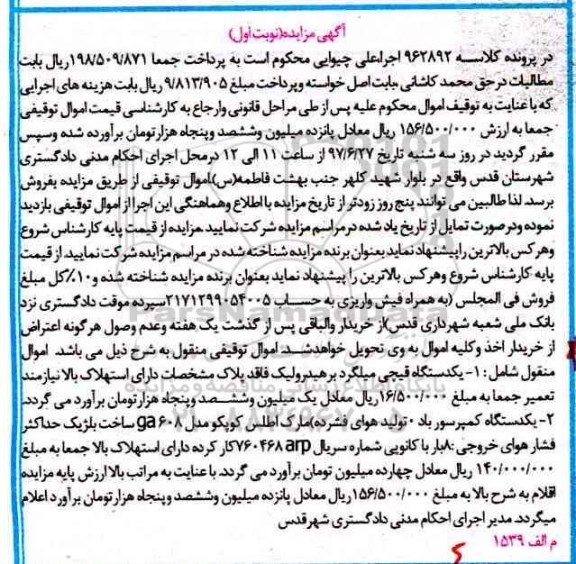 آگهی مزایده(نوبت اول)
در پرونده کلاسه ۹۶۲۸۹۲ اجراعلی چیوایی محکوم است به پرداخت جمعا ۱۹۸/۵۰۹/۸۷۱ریال بابت
مطالبات درحق محمد کاشانی ،بابت اصل خواسته وپرداخت مبلغ ۹/۸۱۳/۹۰۵ ریال بابت هزینه های اجرایی
که با عنایت به توقیف اموال محکوم علیه پس از طی مراحل قانونی وارجاع به کارشناسی قیمت اموال توقیفی
جمعا به ارزش ۱۵۶/۵۰۰/۰۰۰ ریال معادل پانزده میلیون وششصد وپنجاه هزارتومان برآورده شده وسپس
مقرر گردید در روز سه شنبه تاریخ ۹۷/۶/۲۷ از ساعت ۱۱ الی ۱۲ درمحل اجرای احکام مدنی دادگستری
شهرستان قدس واقع در بلوار شهید کلهر جنب بهشت فاطمه(س)اموال توقیفی از طریق مزایده بفروش
برسد. لذا طالبین می توانند پنج روز زودتر از تاریخ مزایده با اطلاع وهماهنگی این اجرا از اموال توقیفی بازدید
نموده ودرصورت تمایل از تاریخ یاد شده درمراسم مزایده شرکت نمایید .مزایده از قیمت پایه کارشناس شروع
وهرکس بالاترین راپیشنهاد نماید بعنوان برنده مزایده شناخته شده در مراسم مزایده شرکت نمایید. از قیمت
پایه کارشناس شروع وهرکس بالاترین را پیشنهاد نماید بعنوان برنده مزایده شناخته شده و۱۰٪کل مبلغ
فروش فی المجلس (به همراه فیش واریزی به حساب ۲۱۷۱۲۹۹۰۵۴۰۰۵سپرده موقت دادگستری نزد
بانک ملی شعبه شهرداری قدس)از خریدار والباقی پس از گذشت یک هفته وعدم وصول هرگونه اعتراض
از خریدار اخذ وکلیه اموال به وی تحویل خواهدشد. اموال توقیفی منقول به شرح ذیل می باشد. اموال
منقول شامل : ۱- یکدستگاه قیچی میلگرد بر هیدرولیک فاقد پلاک مشخصات دارای استهلاک بالا نیازمند
تعمیر جمعا به مبلغ ۱۶/۵۰۰/۰۰۰ریال معادل یک میلیون وششصد وپنجاه هزارتومان برآورد می گردد.
۲- یکدستگاه کمپرسور باد (تولید هوای فشرده)مارک اطلس کوپکو مدل ga ۶۰۸ ساخت بلژیک حداکثر
فشار هوای خروجی :۸بار با کانویی شماره سریال arp ۷۶۰۴۶۸کار کرده دارای استهلاک بالا جمعا به مبلغ
۱۴۰/۰۰۰/۰۰۰ ریال معادل چهارده میلیون تومان برآورد می گردد. با عنایت به مراتب بالا ارزش پایه مزایده
اقلام به شرح بالا به مبلغ ۱۵۶/۵۰۰/۰۰۰ریال معادل پانزده میلیون وششصد وپنجاه هزارتومان برآورد اعلام
میگردد. مدیر اجرای احکام مدنی دادگستری شهرقدس
م الف ۱۵۳۹